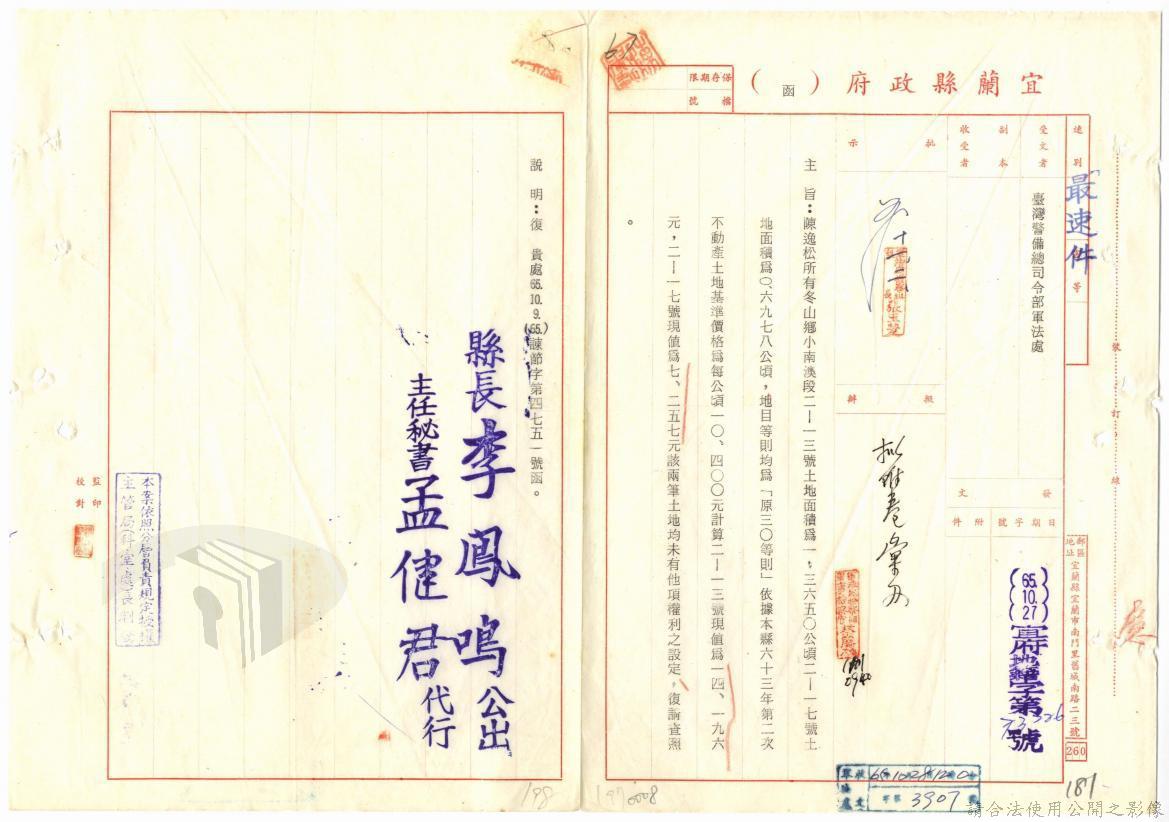 宜蘭縣政府（函）
保存期限
檔號
速別
最速件
受文者
臺灣警備總司令部軍法處
副本收受者
批示
擬辦
發文
日期
字號
附件
(65.10.27)
字第
號
郵區
地址
宜蘭縣宜蘭市南門里舊城南路二三號
260
裝
訂
線
主　旨：陳逸松所有冬山鄉小南澳段二—一三號土地面積為一．三六五〇公頃二—一七號土
地面積為〇．六九七八公頃，地目等則均為「原三〇等則」依據本縣六十三年第二次
不動產土地基準價格為每公頃一〇、四〇〇元計算二—一三號現值為一四、一九六
元，二—一七號現值為七、二五七元該兩筆土地均未有他項權利之設定，復請查照
。
說　明：復　貴處65.10.9.(65)諫節字第四七五一號函。
縣長李鳳鳴公出
主任秘書孟健君代行
本案依照分層負責規定授權
主管局科室處長判發
監印
校對
3907
187
198
197
0008
請合法使用公開之影像